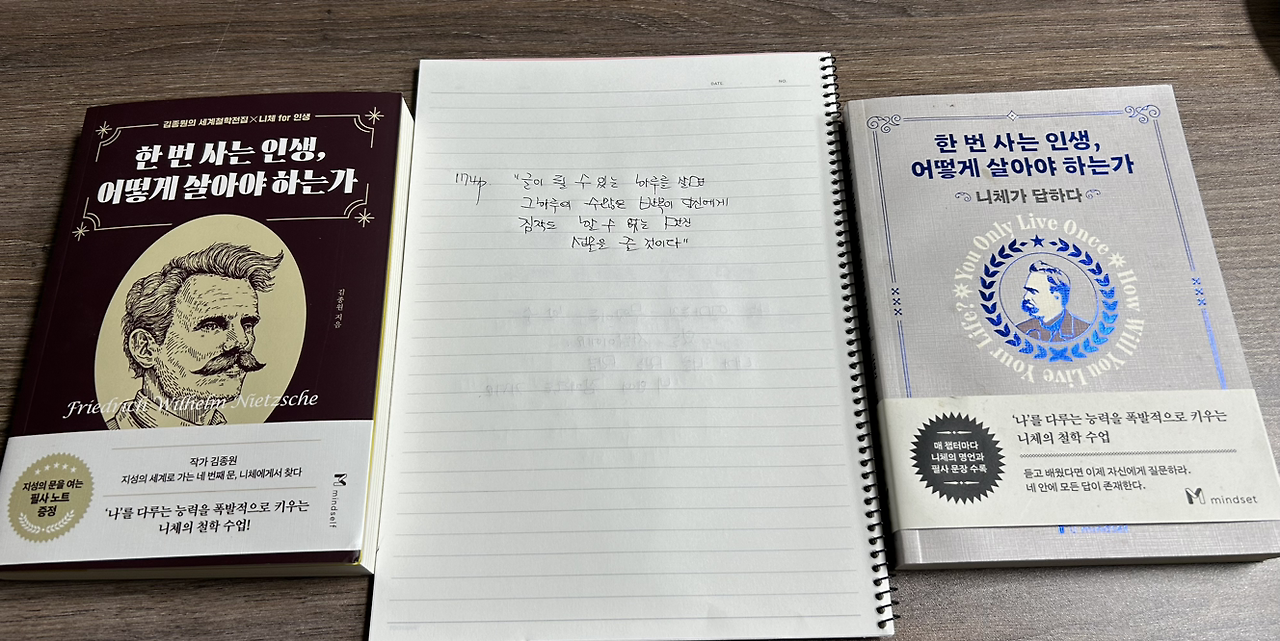 김종원의 세계철학전집×니체 for 인생
한 번 사는 인생,
어떻게 살아야 하는가
김종원 지음
Friedrich Wilhelm Nietzsche
작가 김종원
지성의 세계로 가는 네 번째 문, 니체에게서 찾다
'나'를 다루는 능력을 폭발적으로 키우는
니체의 철학 수업!
지성의 문을 여는
필사 노트
증정
mindself
DATE
NO.
174p. "글이 될 수 있는 하루를 살면
그 하루에 수많은 반복이 당신에게
짐작도 할 수 없는 멋진
선물을 줄 것이다"
한 번 사는 인생,
어떻게 살아야 하는가
니체가 답하다
You Only Live Once
How Will You Live Your Life?
매 챕터마다
니체의 명언과
필사 문장 수록
'나'를 다루는 능력을 폭발적으로 키우는
니체의 철학 수업
듣고 배웠다면 이제 자신에게 질문하라.
네 안에 모든 답이 존재한다.
mindset